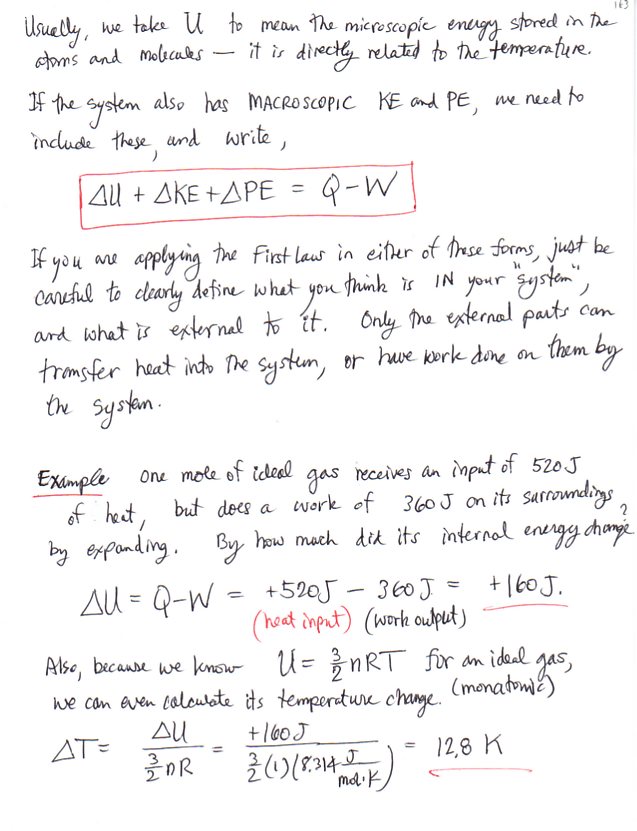 163
Usually, we take U to mean the microscopic energy stored in the
atoms and molecules — it is directly related to the temperature.
If the system also has MACROSCOPIC KE and PE, we need to
include these, and write,
ΔU + ΔKE + ΔPE = Q − W
If you are applying the First Law in either of these forms, just be
careful to clearly define what you think is IN your "system",
and what is external to it. Only the external parts can
transfer heat into the system, or have work done on them by
the system.
Example One mole of ideal gas receives an input of 520 J
of heat, but does a work of 360 J on its surroundings
by expanding. By how much did its internal energy change?
ΔU = Q − W = +520J − 360 J = +160 J.
(heat input) (work output)
Also, because we know U = 3/2 nRT for an ideal gas,
we can even calculate its temperature change. (monatomic)
ΔT = ΔU / (3/2 nR) = +160 J / (3/2 (1)(8.314 J/mol·K)) = 12.8 K